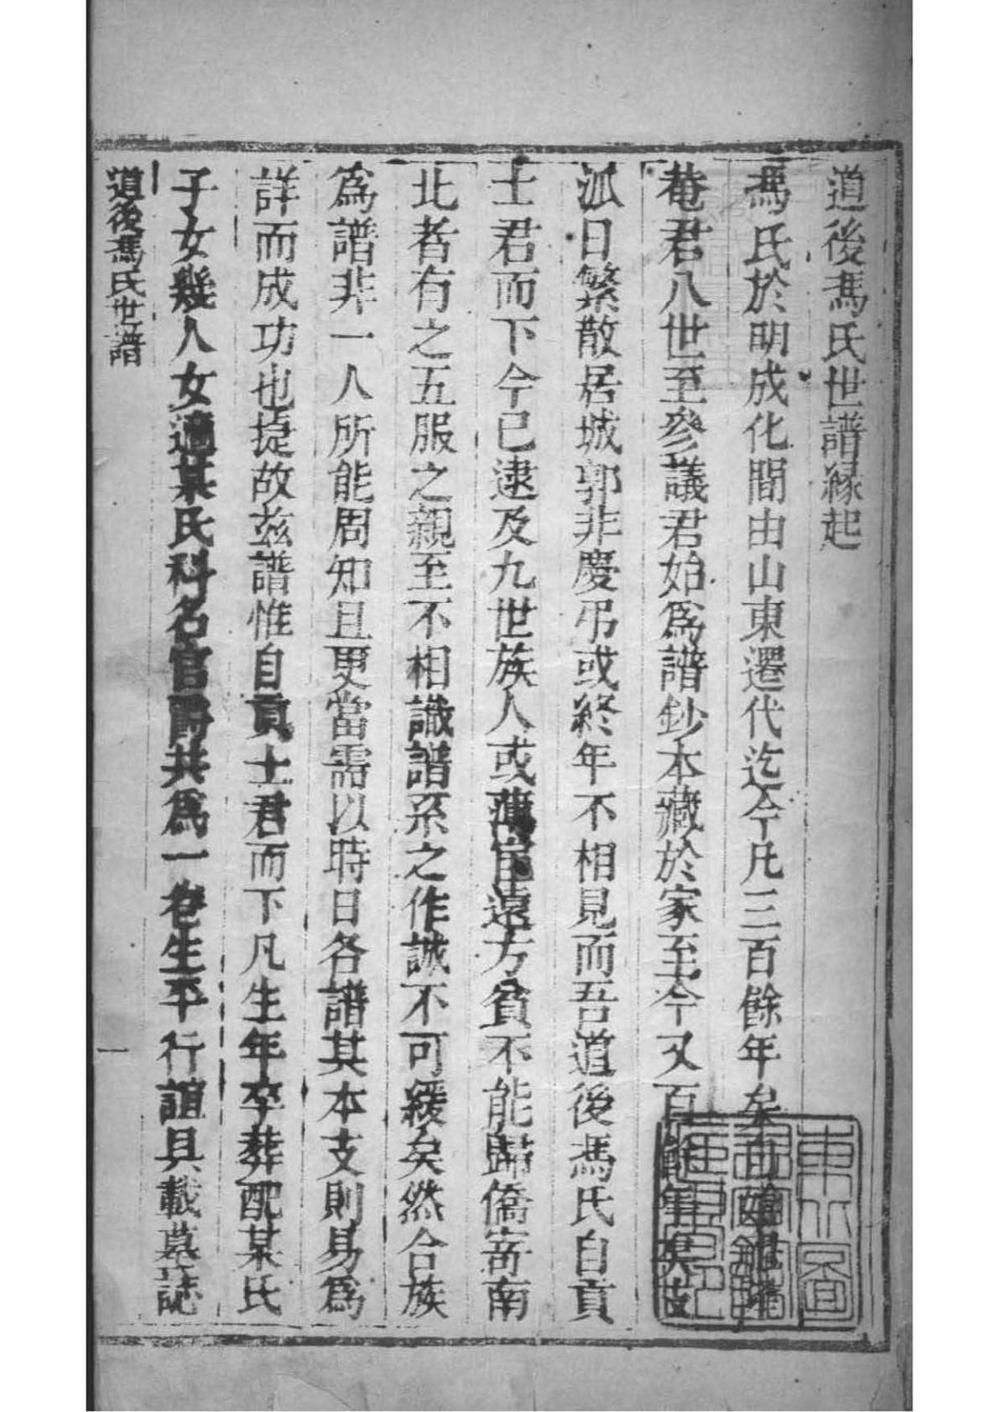 道後馮氏世譜緣起
馮氏於明成化間由山東遷代迄今凡三百餘年矣
菴君八世至參議君始爲譜鈔本藏於家至今又百餘年矣支
派日繁散居城郭非慶弔或終年不相見而吾道後馮氏自貢
士君而下今已逮及九世族人或薄宦遠方貧不能歸僑寄南
北者有之五服之親至不相識譜系之作誠不可緩矣然合族
爲譜非一人所能周知且更當需以時日各譜其本支則易爲
詳而成功也捷故茲譜惟自貢士君而下凡生年卒葬配某氏
子女幾人女適某氏科名官爵共爲一卷生平行誼具載墓誌
道後馮氏世譜
一